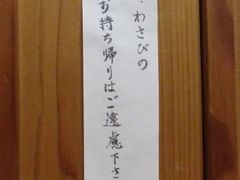 ・わさびの
お持ち帰りはご遠慮下さ